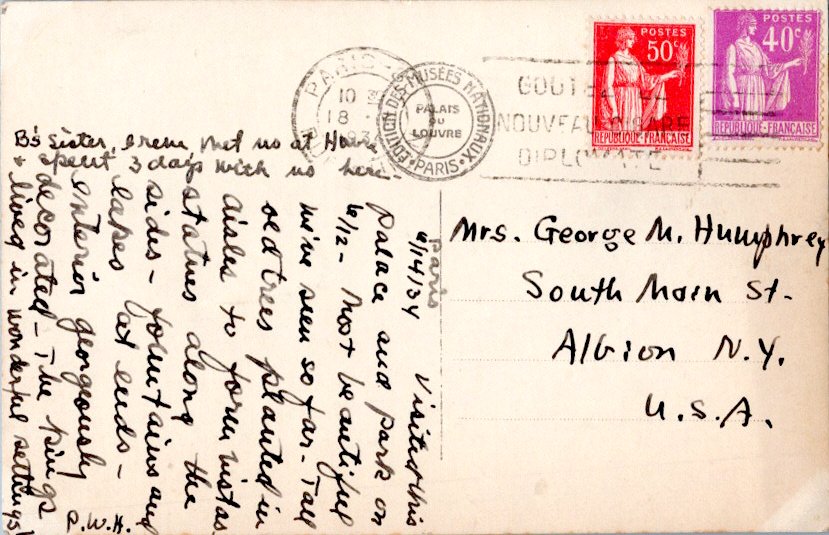 Paris
6/14/34 Visited this
palace and park on
6/12 - Most beautiful
we've seen so far - Tall
old trees planted in
aisles to form vistas
statues along the
sides - fountains and
lakes at ends -
Interior gorgeously
decorated - The kings
lived in wonderful settings!
P.W.H.
B's sister, Irene met us at Havre
& spent 3 days with us here -
Mrs. George M. Humphrey
South Main St.
Albion N.Y.
U.S.A.
POSTES
50c
REPUBLIQUE-FRANCAISE
POSTES
40c
REPUBLIQUE-FRANCAISE
PARIS
10
18
EDITION DES MUSÉES NATIONAUX
PALAIS
DU
LOUVRE
PARIS
GOUTEZ
NOUVEAU CIGARE
DIPLOMATE